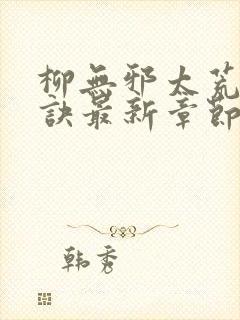 柳無邪太荒
訣最新章節
韓秀